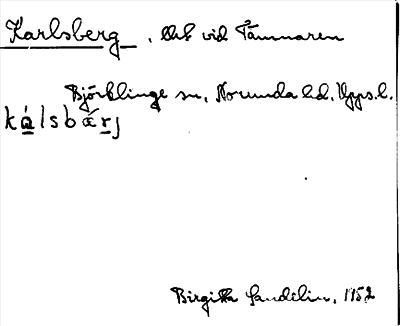 Karlsberg, Ub vid Tämnaren
Björklinge sn, Norunda hd, Upps. l.
kálsbǽrj
Birgitta Sandelin, 1952